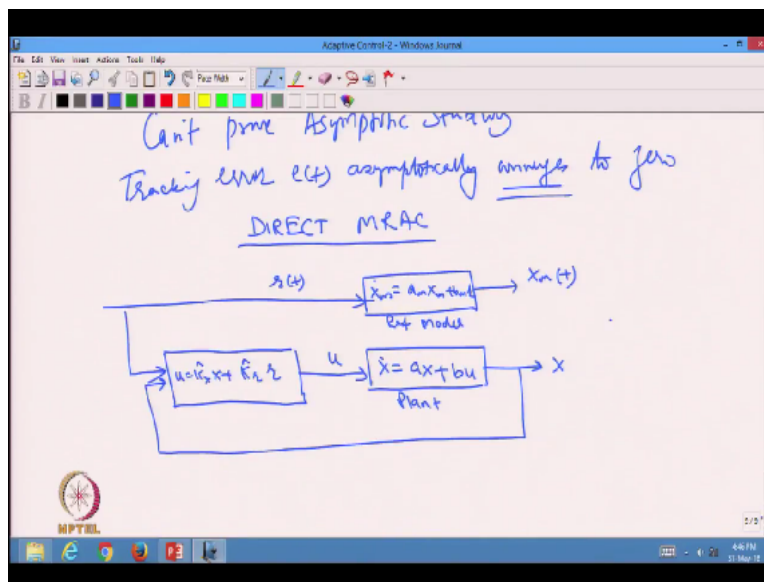 Adaptive Control-2 - Windows Journal
File Edit View Insert Actions Tools Help
Page Width
B I
Can't prove Asymptotic
Tracking error e(t) asymptotically converges to zero
DIRECT MRAC
r(t)
ẋm = am xm + bm r
xm(t)
Ref model
u = k̂x x + k̂r r
u
ẋ = ax + bu
x
Plant
NPTEL
5/5
4:46 PM
31-May-18